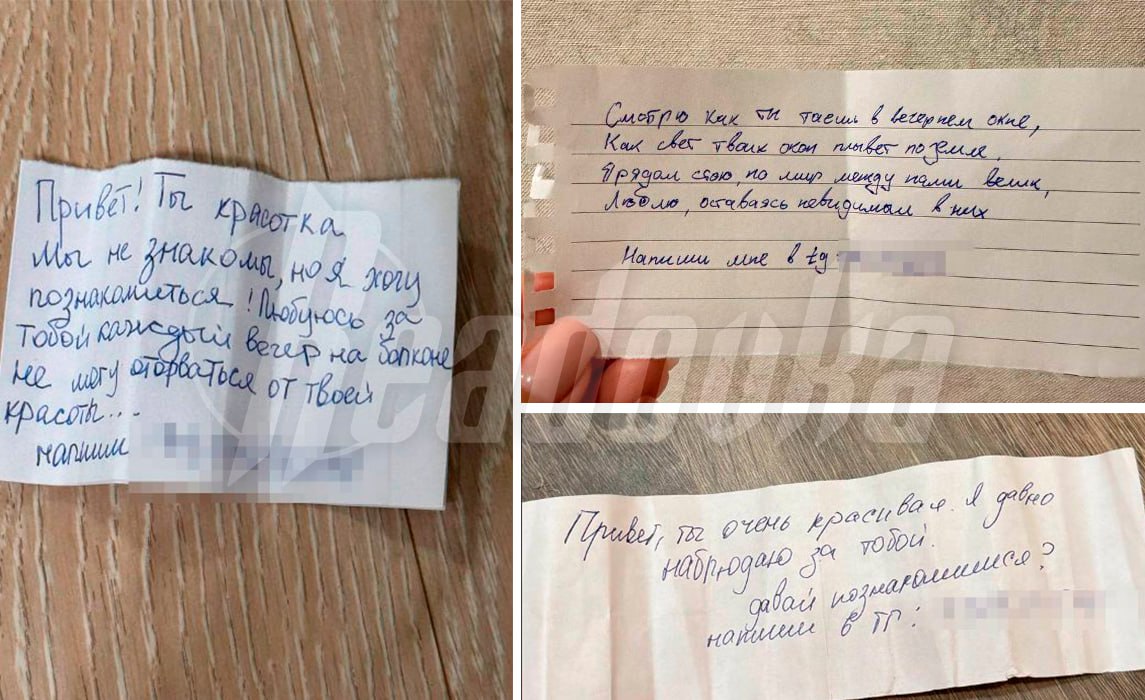 Привет! Ты красотка
Мы не знакомы, но я хочу
познакомиться! Любуюсь за
тобой каждый вечер на балконе
не могу оторваться от твоей
красоты...
напиши
Смотрю как ты таешь в вечернем окне,
Как свет твоих окон плывет по земле,
Я рядом стою, но мир между нами велик,
Люблю, оставаясь невидимым в них
Напиши мне в tg
Привет, ты очень красивая. Я давно
наблюдаю за тобой.
давай познакомимся?
напиши в ТГ:
Readovka